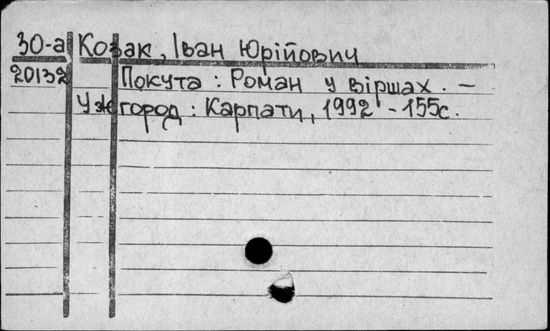 30-а Козак, Іван Юрійович
20132 Покута : Роман у віршах. –
Ужгород : Карпати, 1992 - 155с.